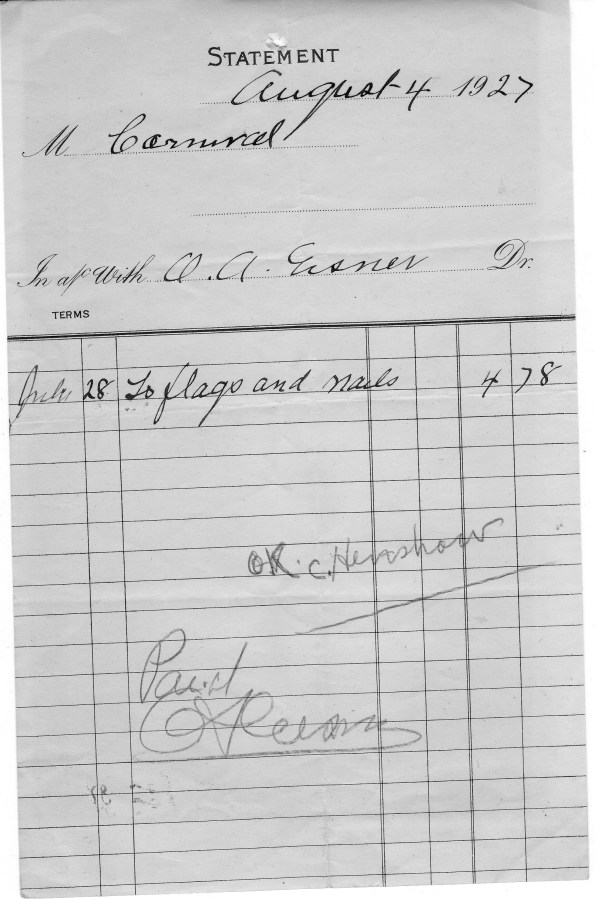 STATEMENT
August 4 1927
M Carnival
In a/c With O. A. Eisner Dr.
TERMS
July 28 To flags and nails 4 78
OK. C. Henshaw
Paid